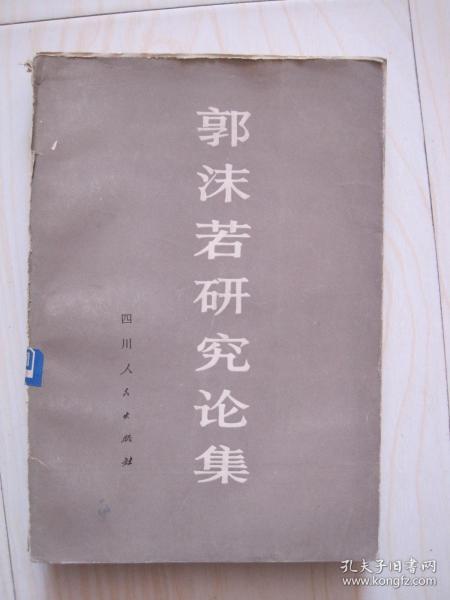 郭沫若研究论集
四川人民出版社
孔夫子旧书网
www.kongfz.com